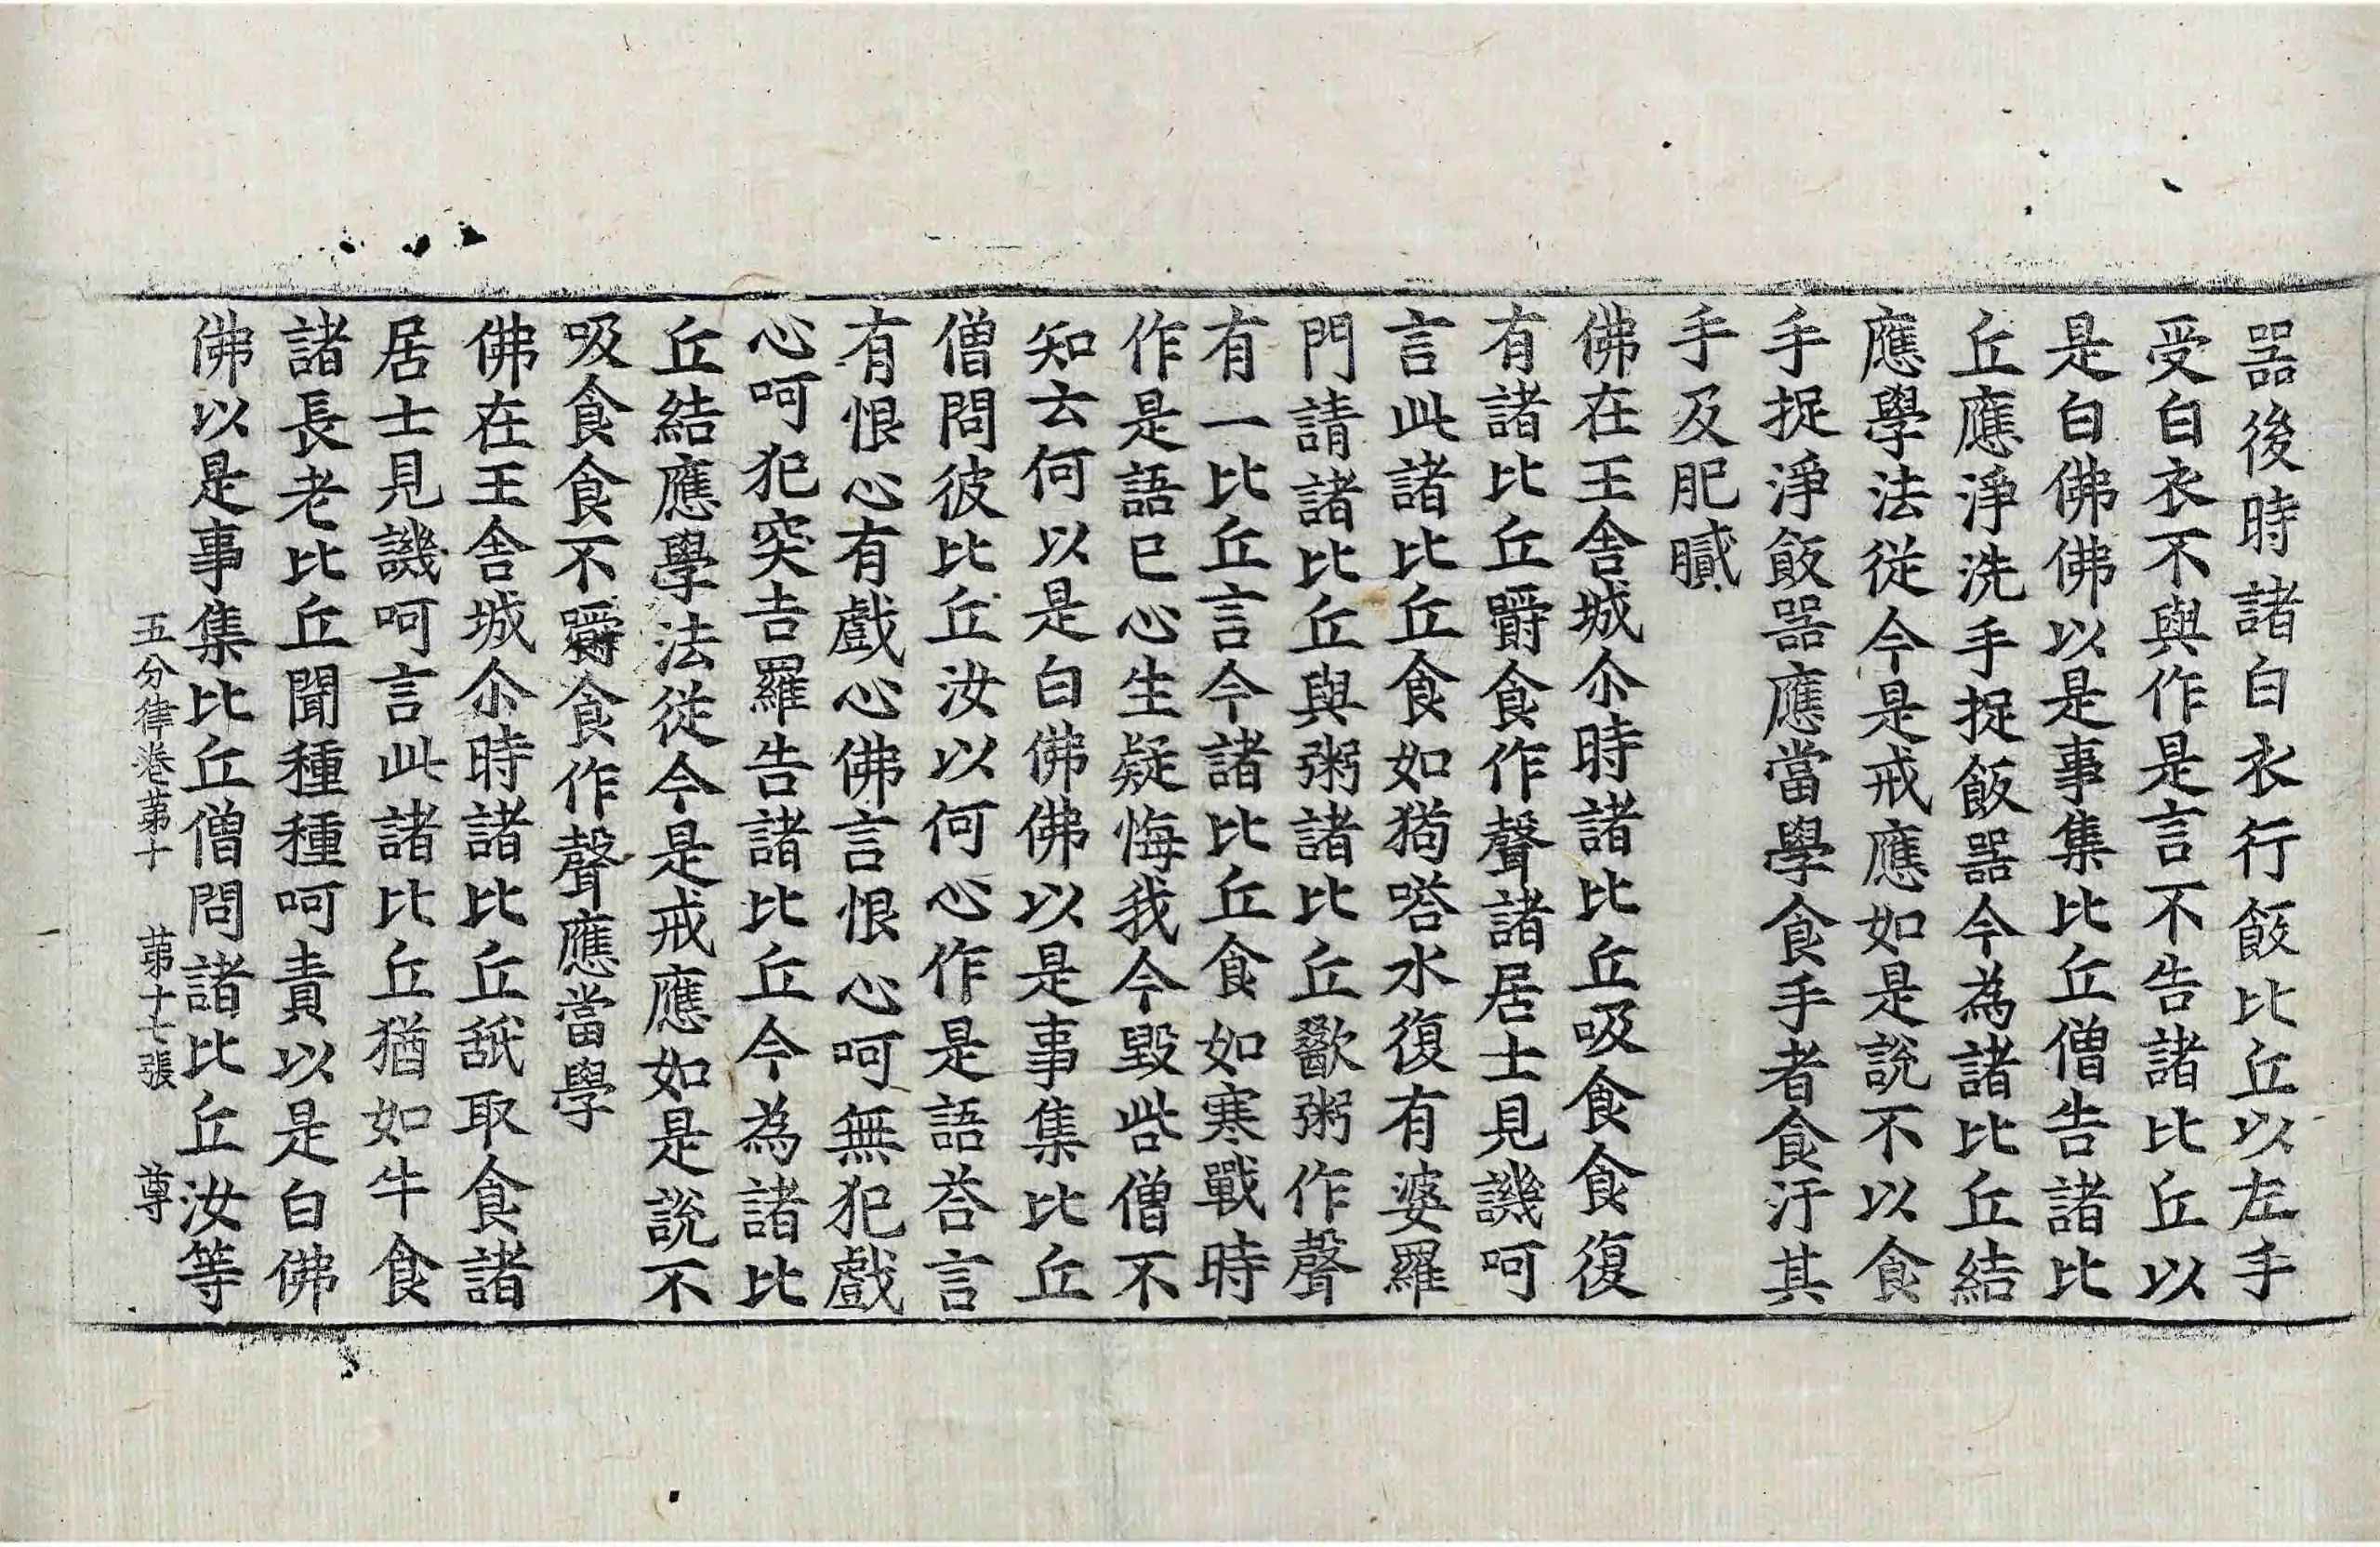 噐後時諸白衣行飯比丘以左手
受白衣不與作是言不告諸比丘以
是白佛佛以是事集比丘僧告諸比
丘應淨洗手捉飯噐今為諸比丘結
應學法從今是戒應如是說不以食
手捉淨飯噐應當學食手者食汙其
手及肥膩
佛在王舍城尒時諸比丘吸食食復
有諸比丘嚼食作聲諸居士見譏呵
言此諸比丘食如狗㗳水復有婆羅
門請諸比丘與粥諸比丘歠粥作聲
有一比丘言今諸比丘食如寒戰時
作是語已心生疑悔我今毀呰僧不
知云何以是白佛佛以是事集比丘
僧問彼比丘汝以何心作是語荅言
有恨心有戲心佛言恨心呵無犯戲
心呵犯突吉羅告諸比丘今為諸比
丘結應學法從今是戒應如是說不
吸食食不嚼食作聲應當學
佛在王舍城尒時諸比丘舐取食諸
居士見譏呵言此諸比丘猶如牛食
諸長老比丘聞種種呵責以是白佛
佛以是事集比丘僧問諸比丘汝等
五分律卷苐十 苐十七張 尊